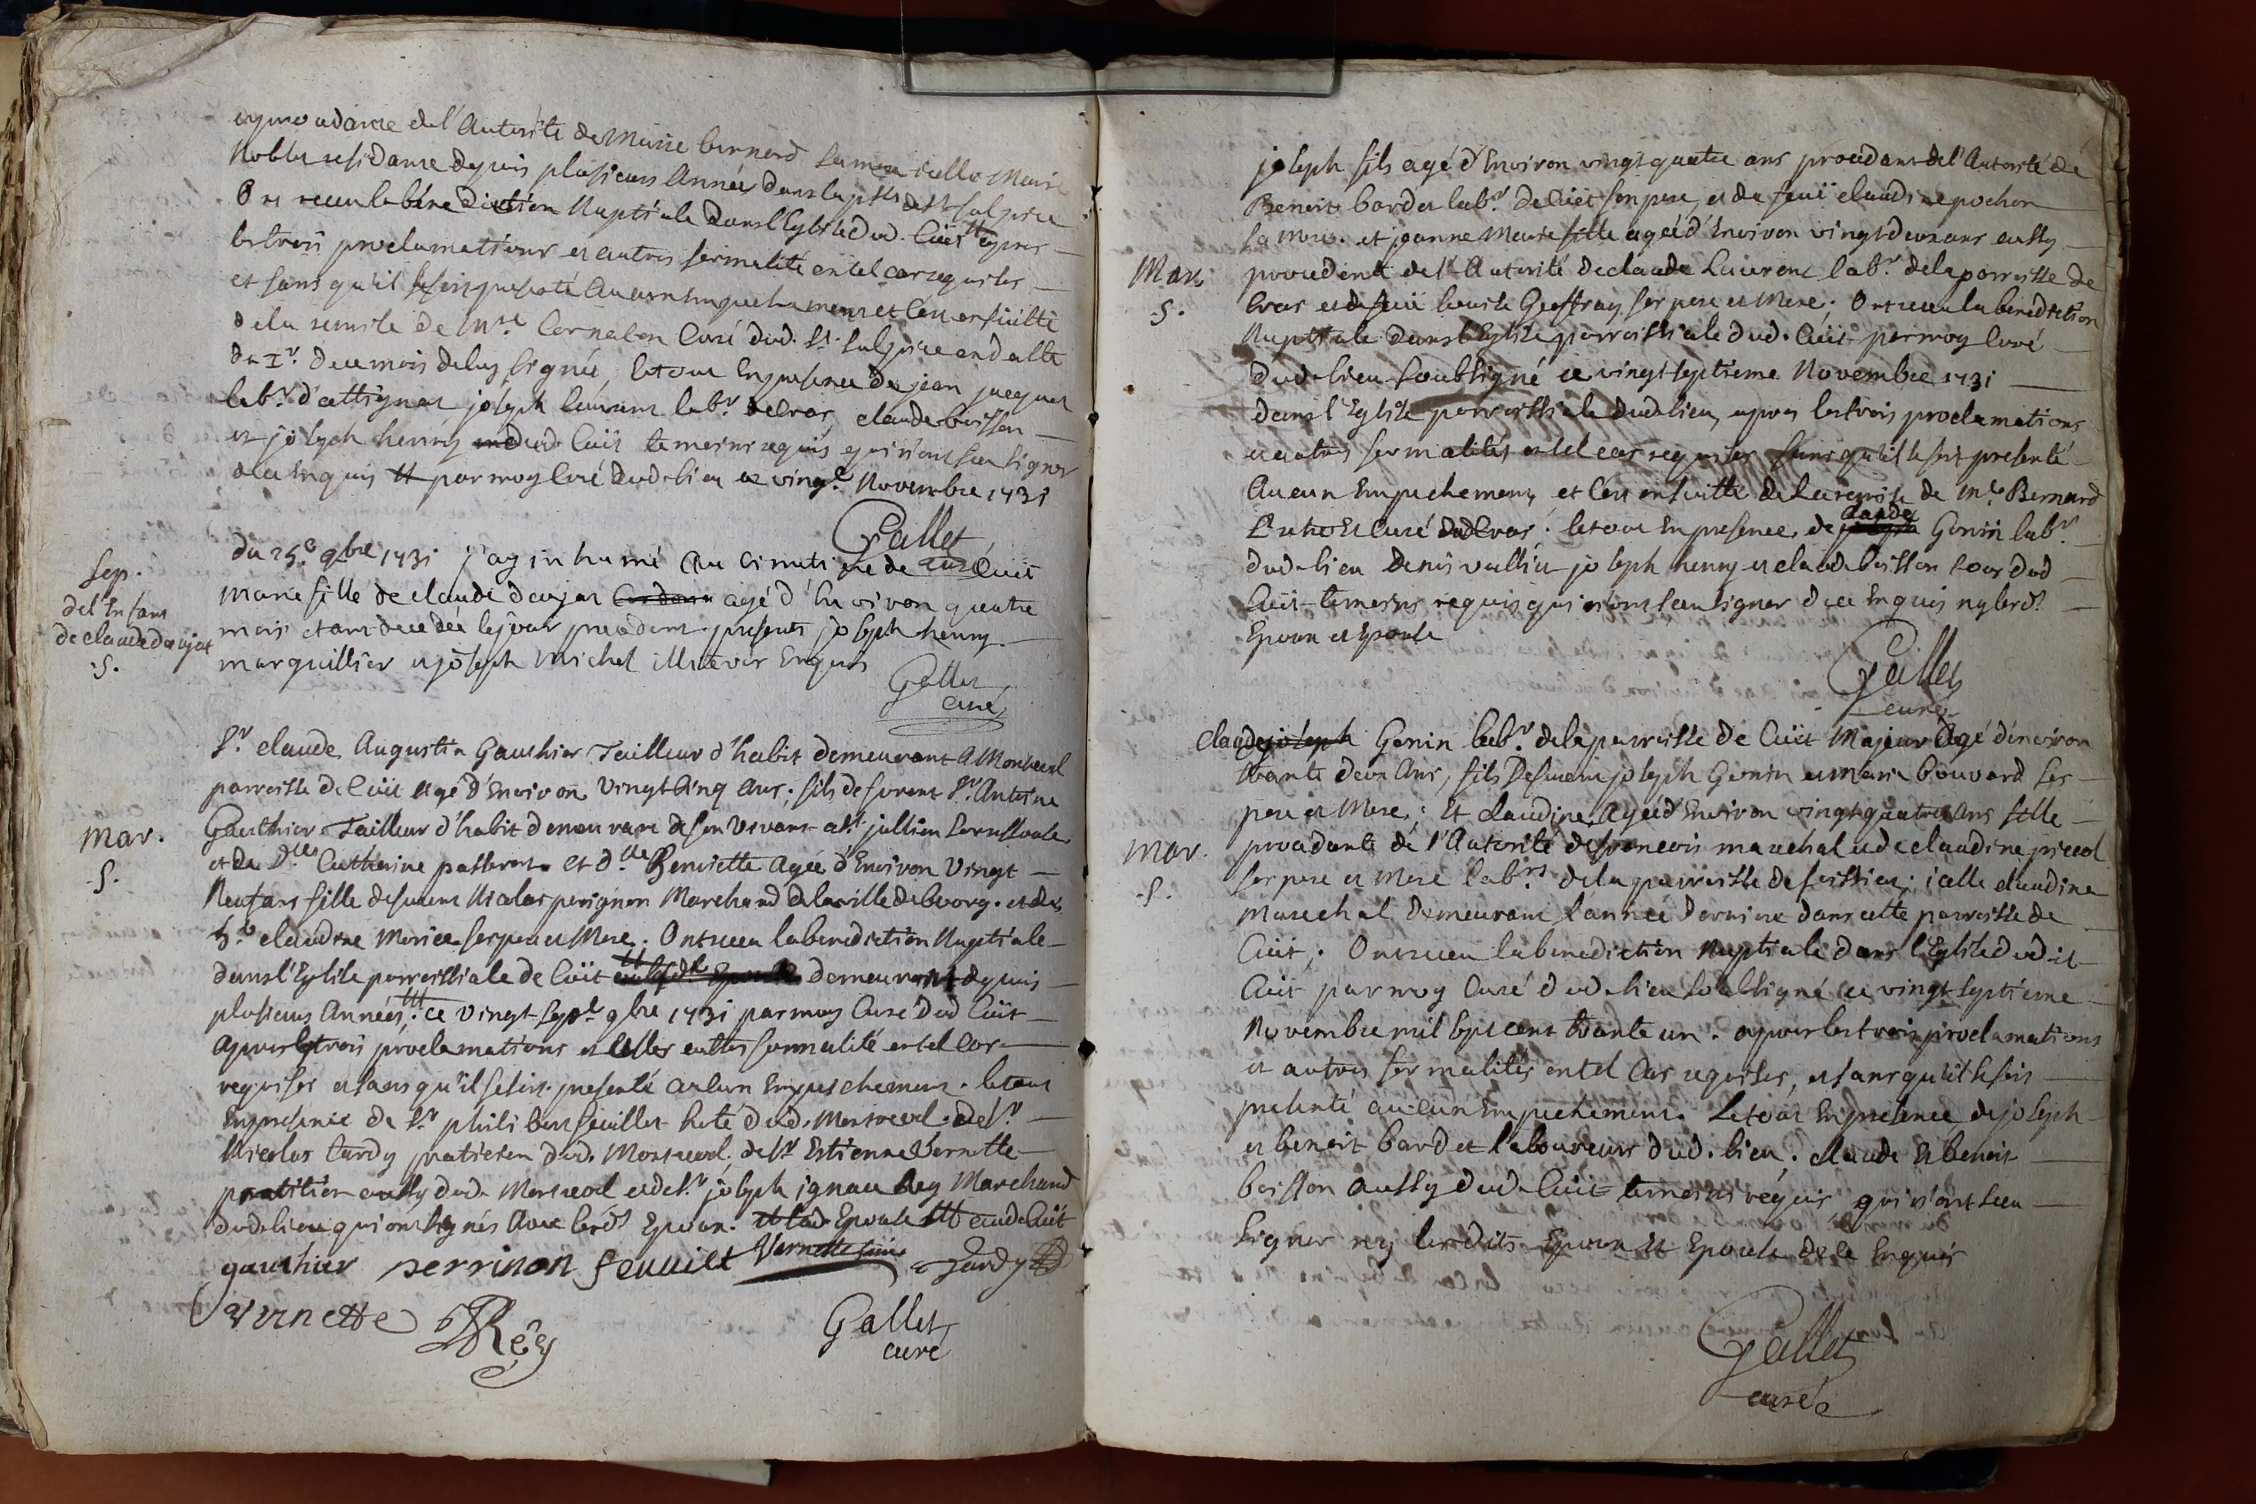 et procedante de l'Autorité de Marie bernard sa mere icelle Marie
Noblet residante depuis plusieurs Année dans la psse de St sulpice
Ont receu la bénediction Nuptiale dans l'Eglise dud. Cüet apres
les trois proclamations et autres formalité en tel cas requises
et sans qu'il se soit presenté Aucun Empechement et c'en ensuitte
de la remise de Mre Cornaton Curé dud. St. Sulpice en datte
du de ce mois de luy signée, le tout En presence de jean jacquet
labr. d'attignat joseph laurent labr de cras, claude boisson
et joseph henry dud. Cüet temoins requis qui n'ont sceu signer
de ce Enquis par moy Curé dud. lieu ce vingt Novembre 1731
Gallet
curé
Sep.
de l'Enfant
de claude daujat
.S.
du 25e 9bre 1731 j'ay inhumé Au Cimetiere de Cüet
Marie fille de claude daujat agé d'Environ quatre
mois etant decedée le jour precedent presents joseph henry
marguillier et joseph Michel illiterés Enquis
Gallet
curé
Mar.
.S.
Sr. claude Augustin Gauthier Tailleur d'habit demeurant A Montrevel
parroisse de Cüet agé d'Environ Vingt Cinq Ans, fils de feu Sr. Antoine
Gauthier Tailleur d'habit demeurant de son Vivant a St. jullien
et de Dlle Catherine passerat et Dlle Benoiste Agée d'Environ Vingt
Neuf ans fille de feu Nicolas perignon Marchand de la ville de bourg. et de
claudine Morice ses pere et Mere. Ont receu la benediction Nuptiale
dans l'Eglise parroissiale de Cüet demeurant depuis
plusieurs Années, ce Vingt Sept 9bre 1731 par moy Curé dud Cüet
Apres les trois proclamations et telles autres formalité en tel Cas
requises et sans qu'il se soit presenté aucun Empeschement. le tout
En presence de Sr philibert feuillet hoté dud. Montrevel. de Sr
Nicolas tardy praticien dud. Montrevel, de Sr Estienne Vernette
praticien aussy dud. Montrevel et de Sr joseph ignace Rey Marchand
dud. lieu qui ont signés Avec lesds Epoux. et lad Epouse
gauthier perrinon feuuilet Vernette tardy
vernette Rey
Gallet
curé
joseph fils agé d'Environ vingt quatre ans procedant de l'Autorité de
Benoit bardet labr. de Cüet son pere, et de feuë claudine pochon
sa Mere. et jeanne Marie fille agée d'Environ vingt deux ans aussy
procedente de l'Autorité de claude Laurent labr. de la parroisse de
Mar.
.S.
Cras et de feuë louise Geoffray ses pere et Mere. Ont receu la benediction
Nuptiale dans l'Eglise parroissiale dud. Cüet par moy Curé
dud. lieu soubsigné ce vingt septieme Novembre 1731
dans l'Eglise parroissiale dud. lieu, apres les trois proclamations
et autres formalités en tel cas requises sans qu'il se soit presenté
Aucun Empechement et C'en ensuitte de la remise de Mre Bernard
Curé dud Cras. le tout En presence. de claude Gonin labr.
dud. lieu Denis vallier joseph henry et claude boisson tous dud
Cüet temoins requis qui n'ont sceu signer de ce Enquis ny lesds.
Epoux et Epouse
Gallet
curé
claude joseph Gonin labr. de la parroisse de Cüet Majeur Agé d'environ
trante deux Ans, fils de feu joseph Gonin et Marie bouvard ses
pere et Mere; Et claudine, Agée d'Environ vingt quatre Ans fille
Mar.
.S.
procedante de l'Autorité de francois marechal et de claudine
ses pere et Mere labrs. de la parroisse de foissiat; icelle claudine
Marechal demeurant l'année derniere dans cette parroisse de
Cüet,. Ont receu la benediction Nuptiale dans l'Eglise dud-it
Cüet par moy Curé dud. lieu soubsigné ce vingt septieme
Novembre mil sept cent trante un. apres les trois proclamations
et autres formalités en tel Cas requises, et sans qu'il se soit
presenté aucun Empechement. Le tout En presence de joseph
et benoit bardet laboureurs dud. lieu. claude et benoit
boisson aussy dud. Cüet temoins requis qui n'ont sceu
signer ny lesdits Epoux et Epouse de ce Enquis
Gallet
curé